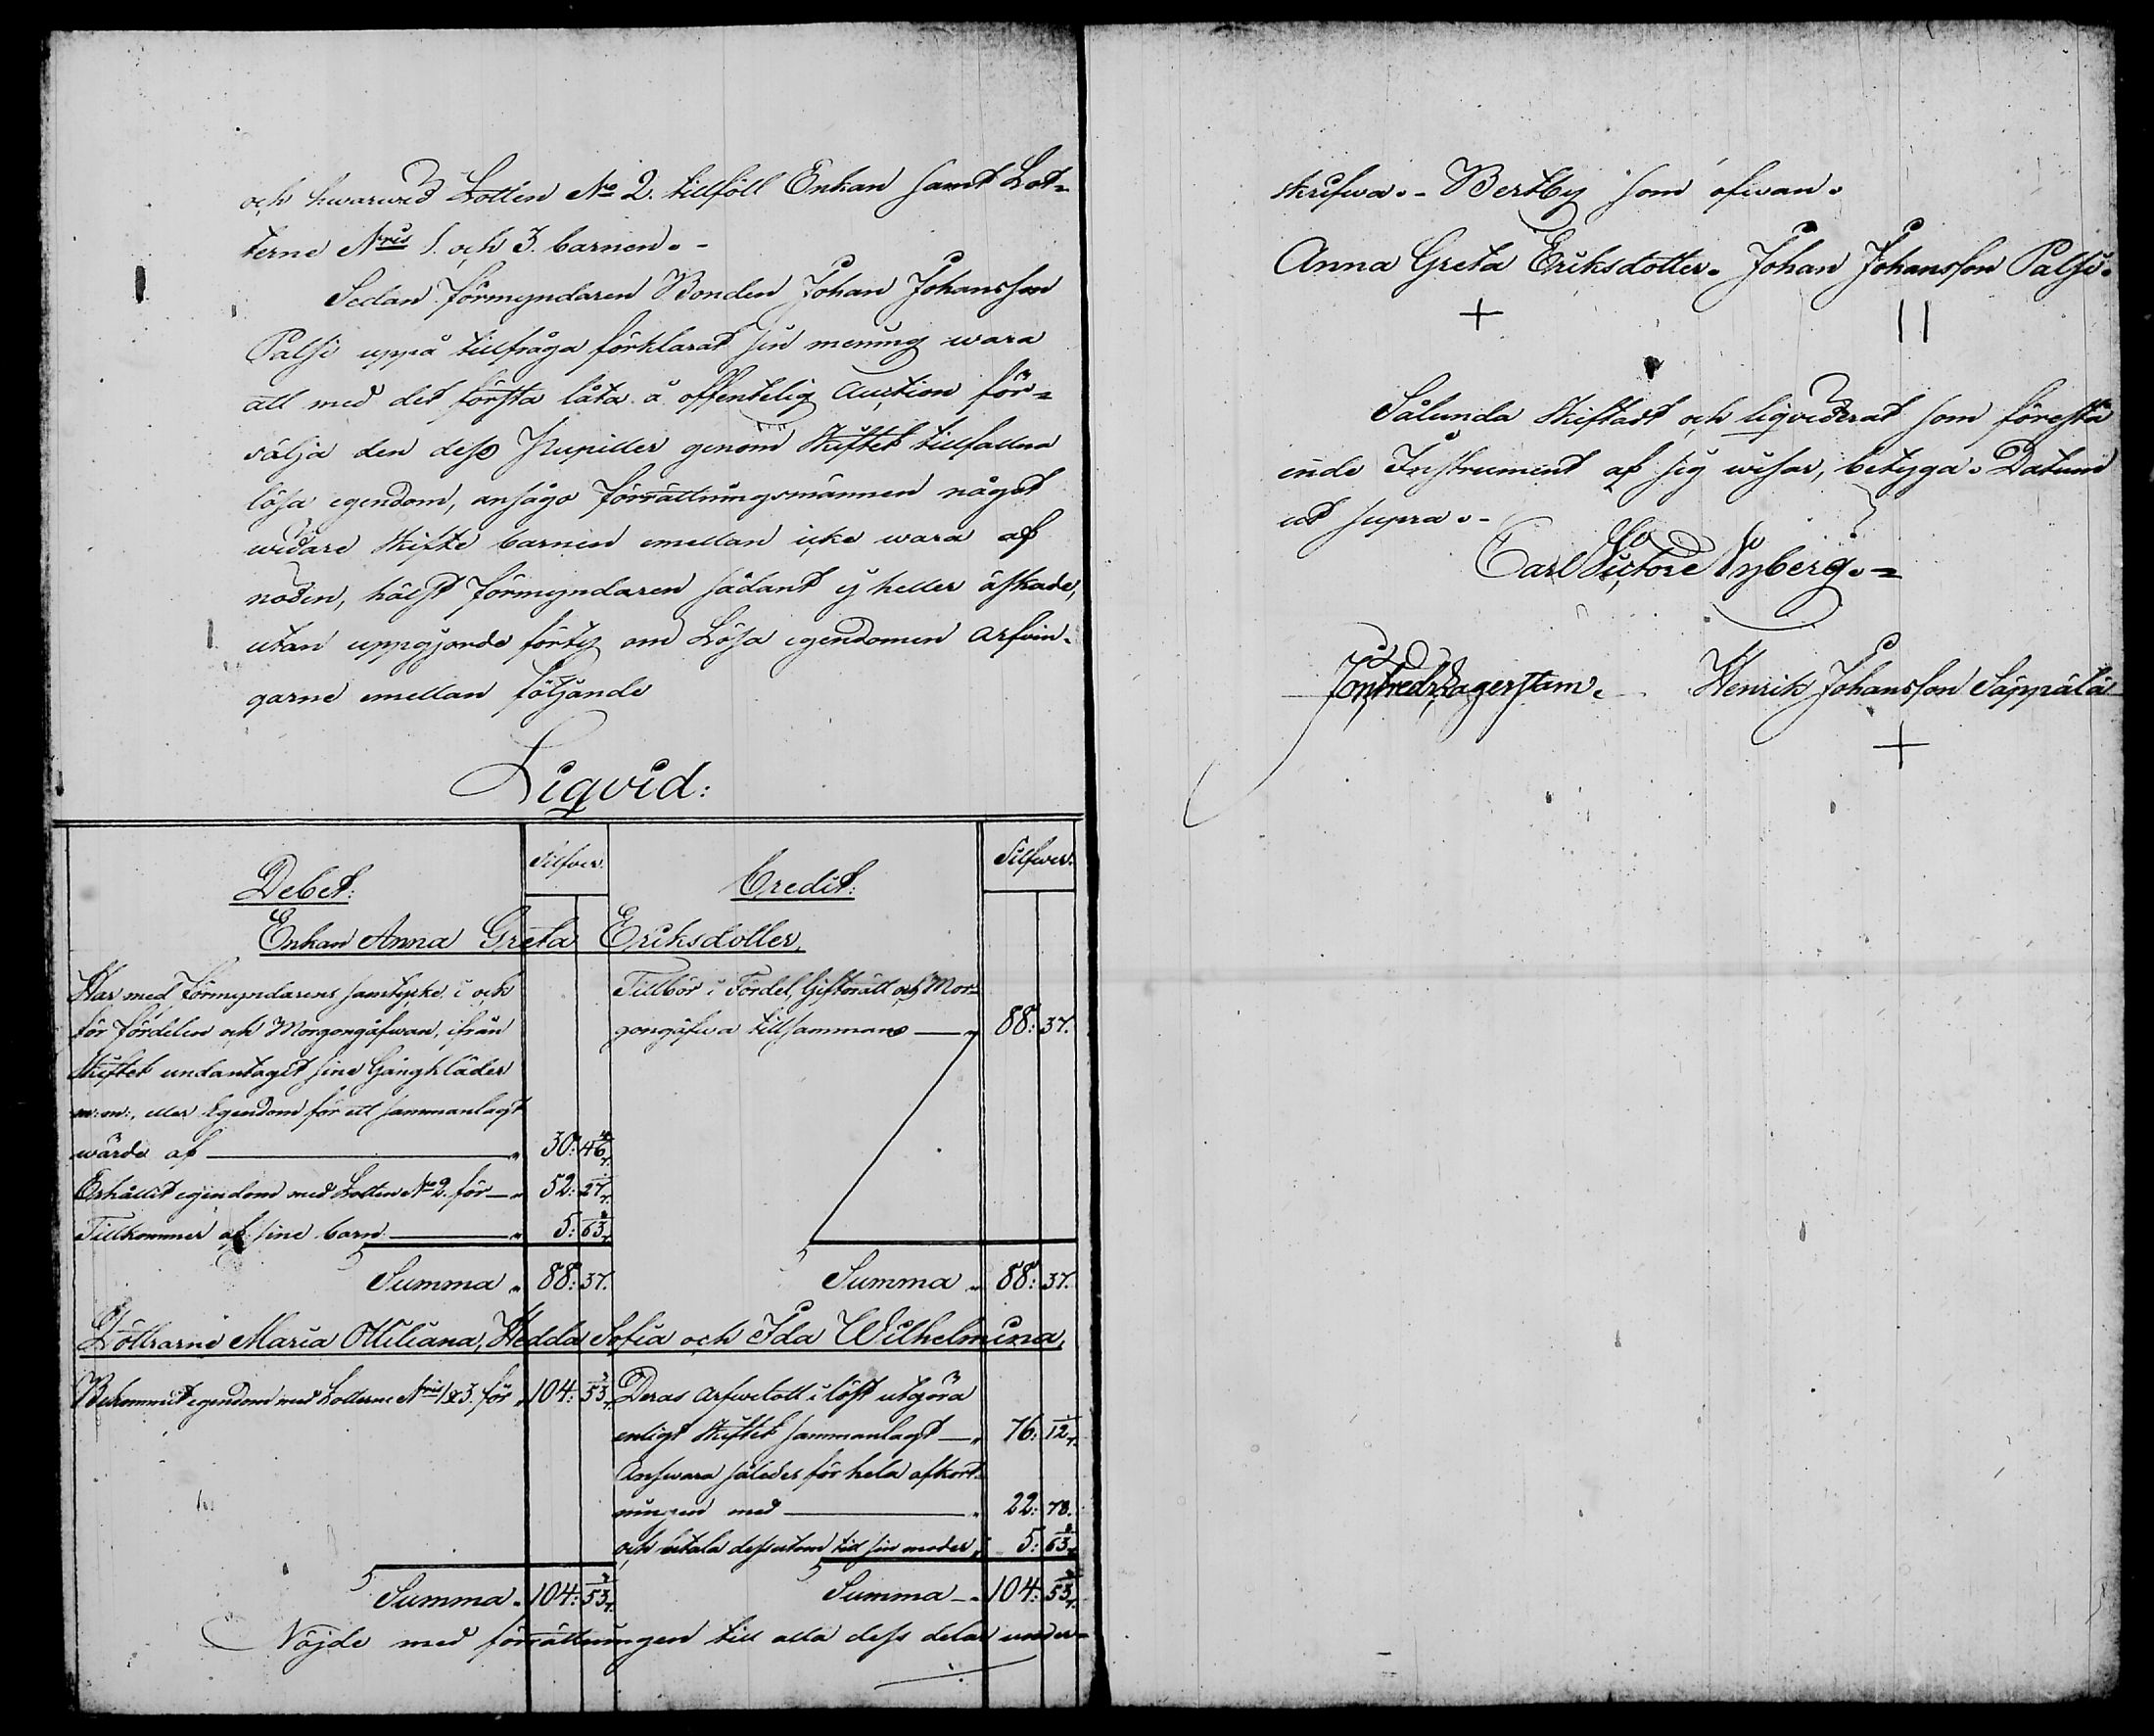 och hwarwid Lotten No 2. tillföll Enkan samt Lot-
terne Nris 1. och 3. barnen. -
Sedan Förmyndaren Bonden Johan Johansson
Palsi uppå tillfråga förklarat sin mening wara
att med det första låta å offentelig Auction för-
sälja den dess Pupiller genom Skiftet tillfallna
lösa egendom, ansågo Förrättningsmännen något
widare Skifte barnen emellan icke wara af
nöden, hälst Förmyndaren sådant ej heller äskade,
utan uppgjorde förty om Lösa egendomen Arfwin-
garne emellan följande
Liqvid:
Debet: Silfver. Credit: Silfwer.
Enkan Anna Greta Eriksdotter,
Har med Förmyndarens samtycke i och Tillbör i Fördel, Giftorätt och Mor-
för fördelen och Morgongåfwan, ifrån gongåfwa tillsammans — " 88: 37.
Skiftet undantagit sine Gångkläder
m: m:, eller Egendom för ett sammanlagt
wärde af — " 30: 46 4/7.
Erhållit egendom med Lotten No 2. för — " 52: 27 1/7.
Tillkommer af sine barn — " 5: 63 2/7.
Summa " 88: 37. Summa " 88: 37.
Döttrarne Maria Ottiliana, Hedda Sofia och Ida Wilhelmina,
Bekommit egendom med Lotterne Nris 1 & 3. för " 104: 53 3/7. Deras Arfwelott i löst utgöra
enligt Skiftet sammanlagt — " 76: 12 1/7.
Answara således för hela afkort-
ningen med — " 22: 78.
och betala dessutom till sin moder " 5: 63 2/7.
Summa " 104: 53 3/7. Summa — " 104: 53 3/7.
Nöjde med förrättningen till alla dess delar under-
skrifwa. - Bertby som ofwan.
Anna Greta Eriksdotter. Johan Johansson Palsi.
+ ||
Sålunda Skiftadt och liqviderat som förestå
ende Instrument af sig wisar, betyga. Datum
ut supra. -
Carl Victore Nyberg. =
Jon Fredr Lagerstam. Henrik Johansson Säppälä
+